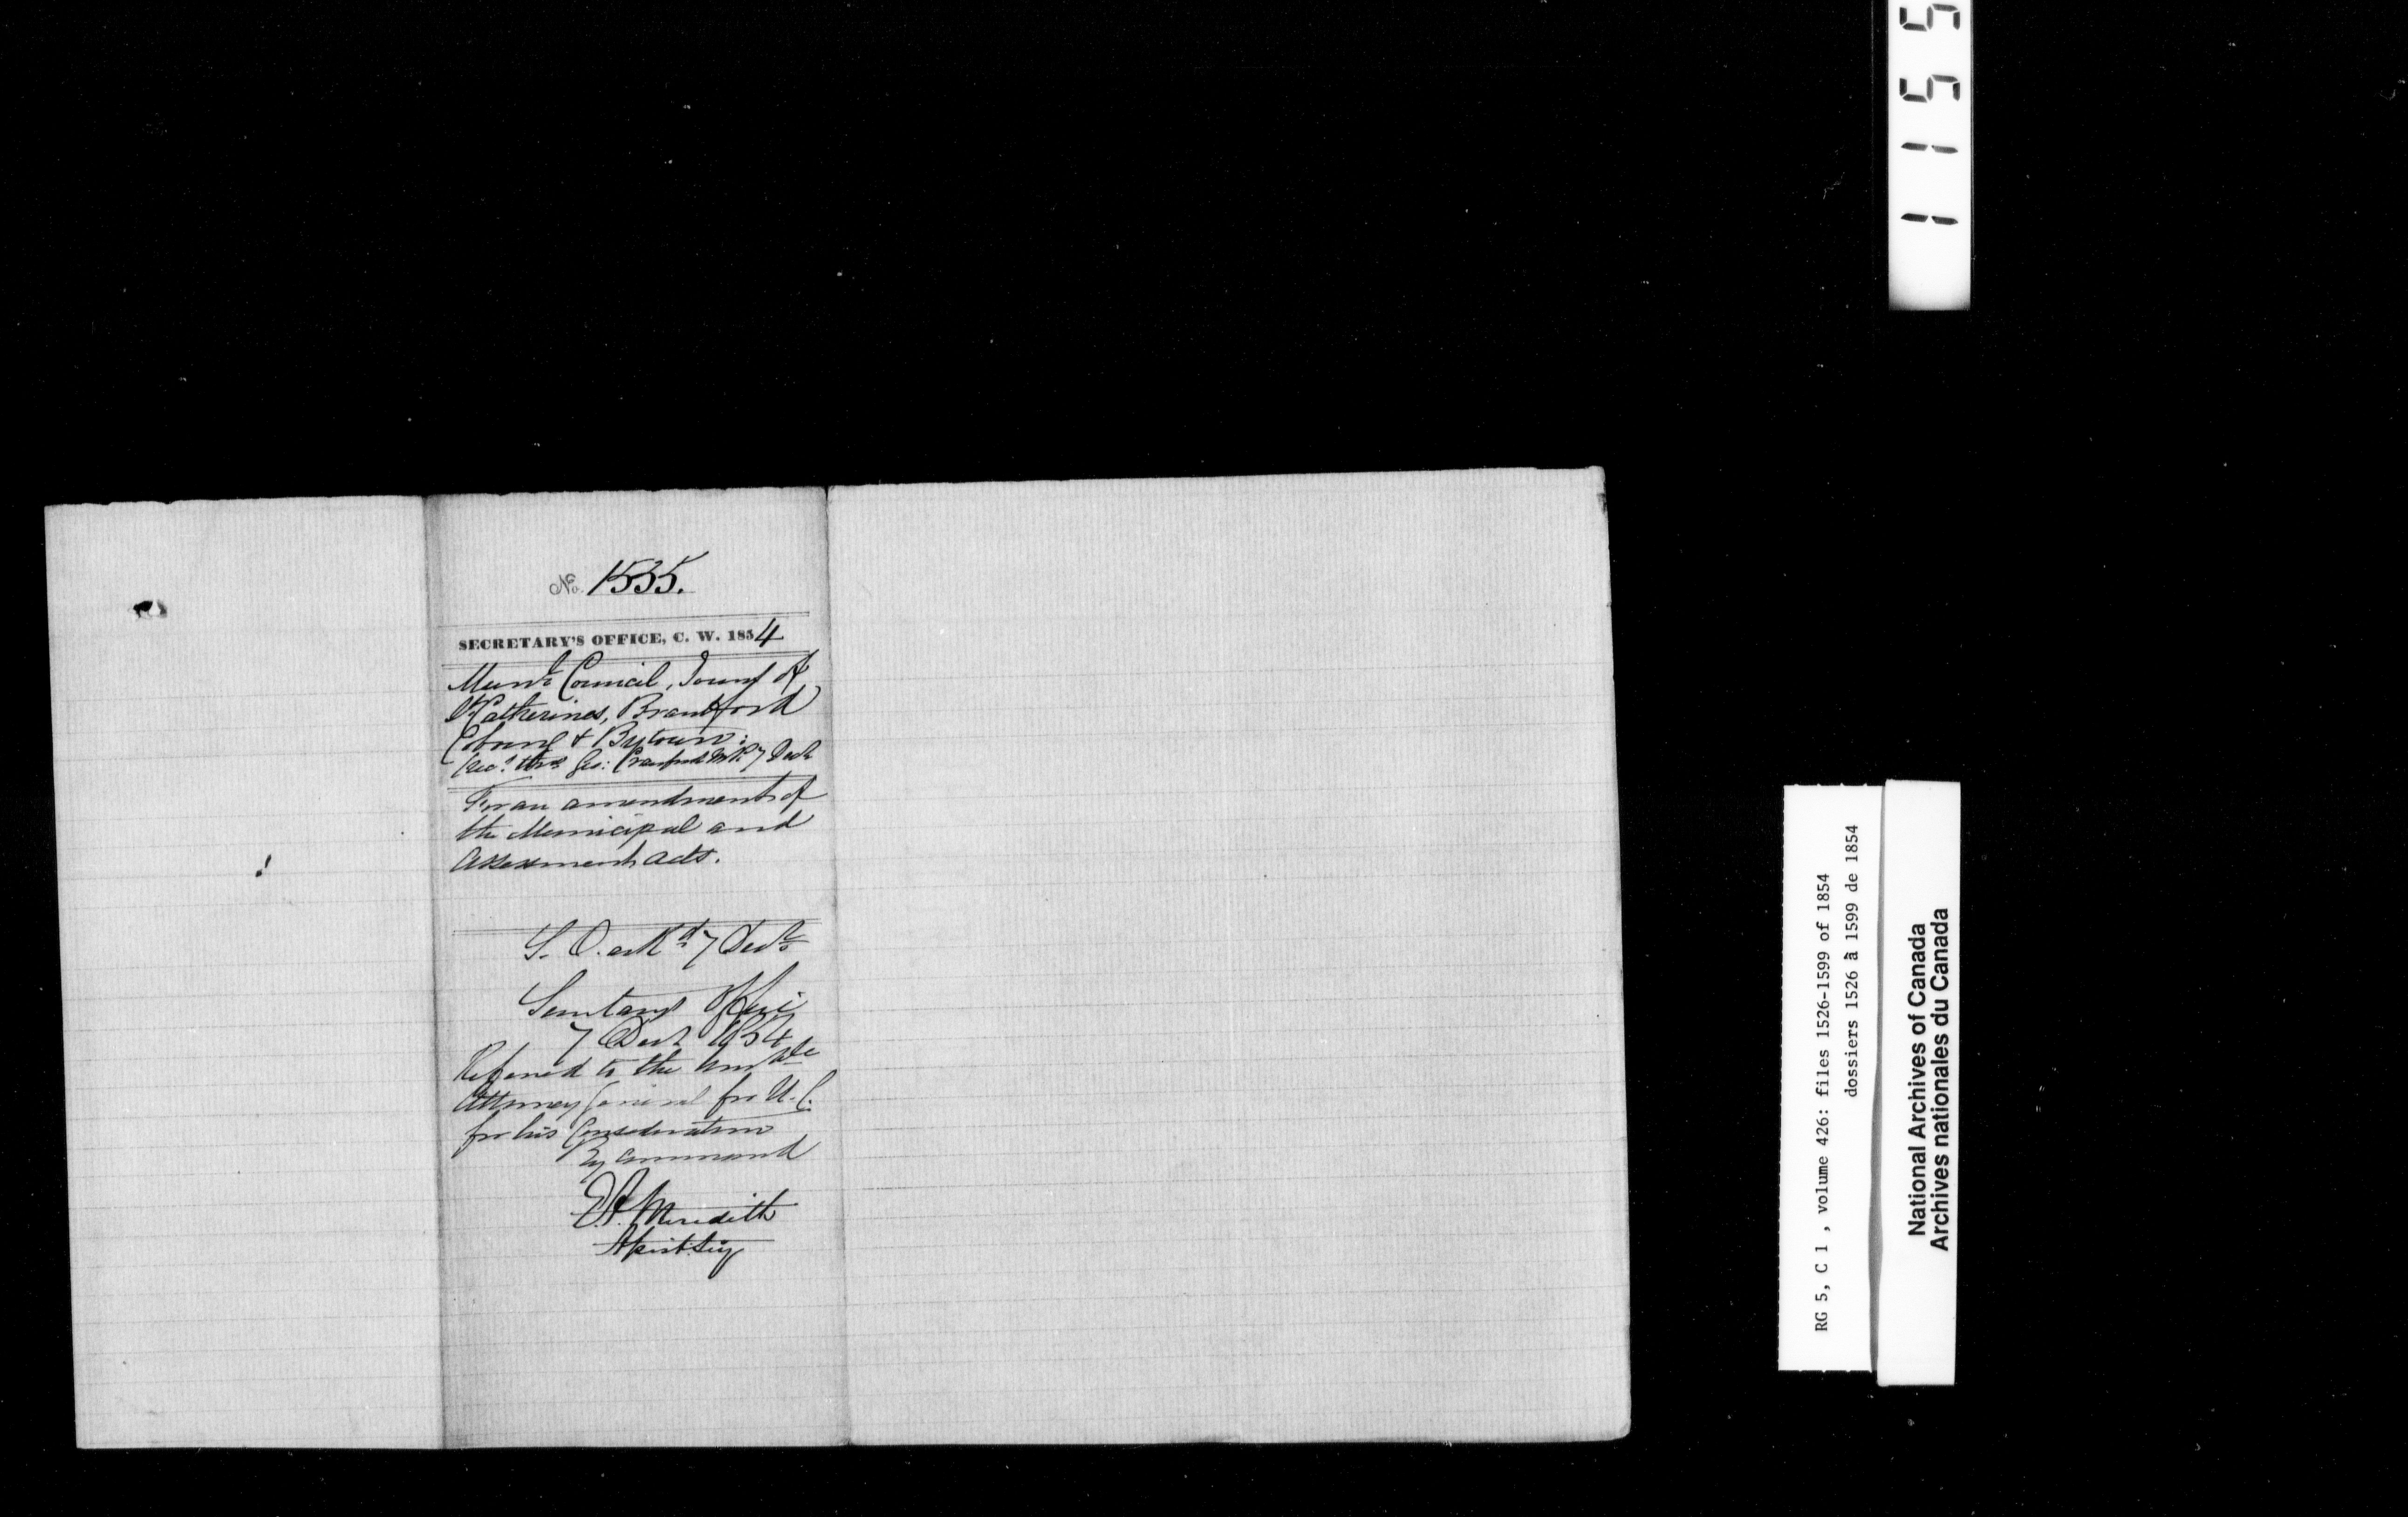 No. 1535.
SECRETARY'S OFFICE, C. W. 1854
Munl Council, Towns of
St Catherines, Brantford
Cobourg & Bytown:
Recd. thro Geo: Crawford M.P. 7 Decr
For an amendment of
the Municipal and
Assessment Acts.
S. O. ackd 7 Decr
Secretary's Office
7 Decr 1854
Referred to the Honble
Attorney General for U. C.
for his Consideration
By Command
E.A. Meredith
Asist. Secy
1155
RG 5, C 1 , volume 426: files 1526-1599 of 1854
dossiers 1526 à 1599 de 1854
National Archives of Canada
Archives nationales du Canada